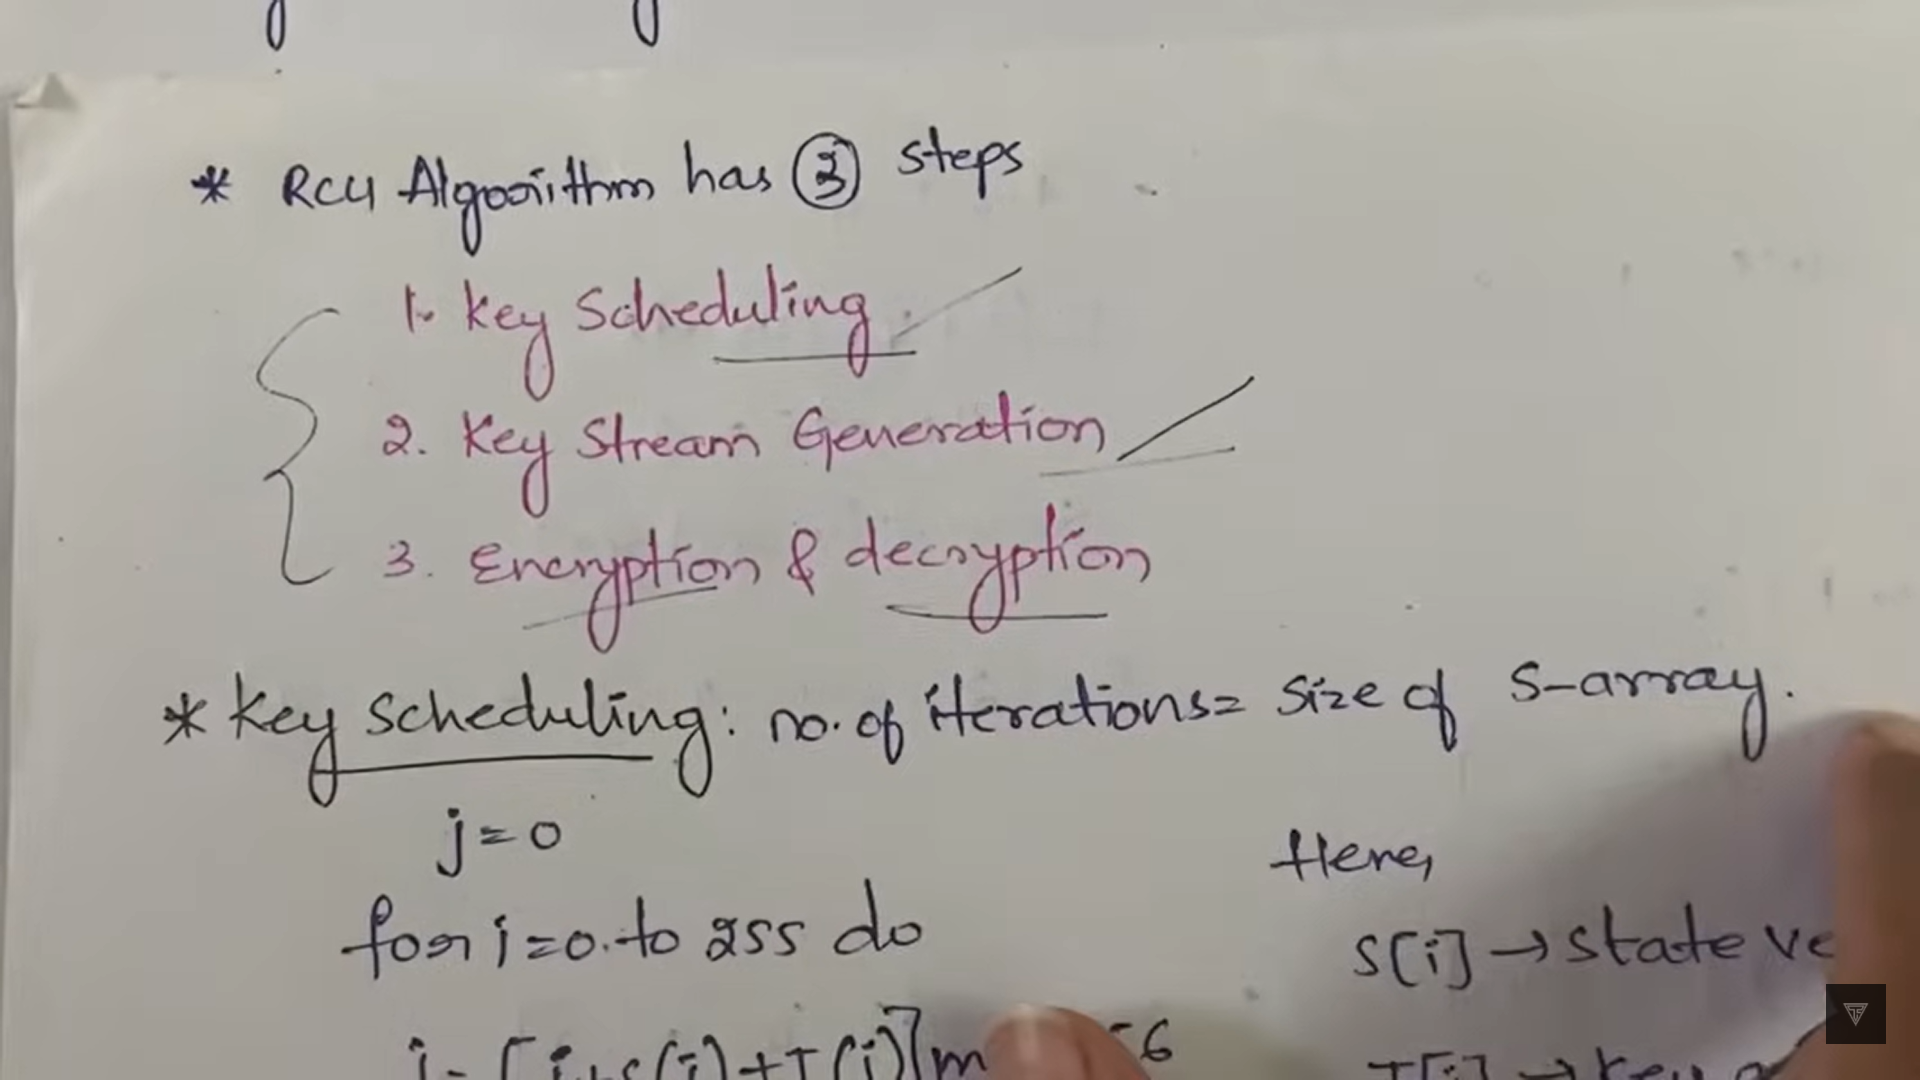 * RC4 Algorithm has 3 steps
1. Key Scheduling
2. Key Stream Generation
3. Encryption & decryption
* Key scheduling: no. of iterations = Size of S-array.
j=0
for i=0 to 255 do
Here,
S[i] → state
j = [j+S(i)+T(i)]
T[i] → Key